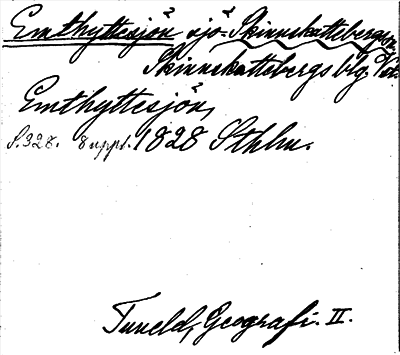 Emthyttesjön sjö Skinnskattebergs sn
Skinnskattebergs blg. Vstm.
Emthyttesjön,
S. 328. 8 uppl. 1828 Sthlm.
Tuneld, Geografi. II.